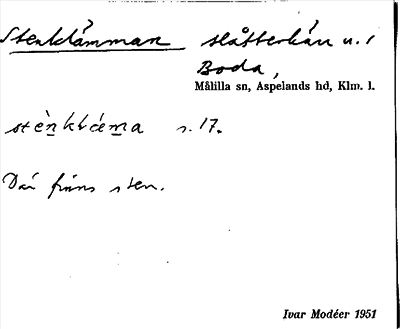 Stenklämman slåtterkärr u. 1
Boda,
Målilla sn, Aspelands hd, Klm. l.
s. 17.
Där finns sten.
Ivar Modéer 1951